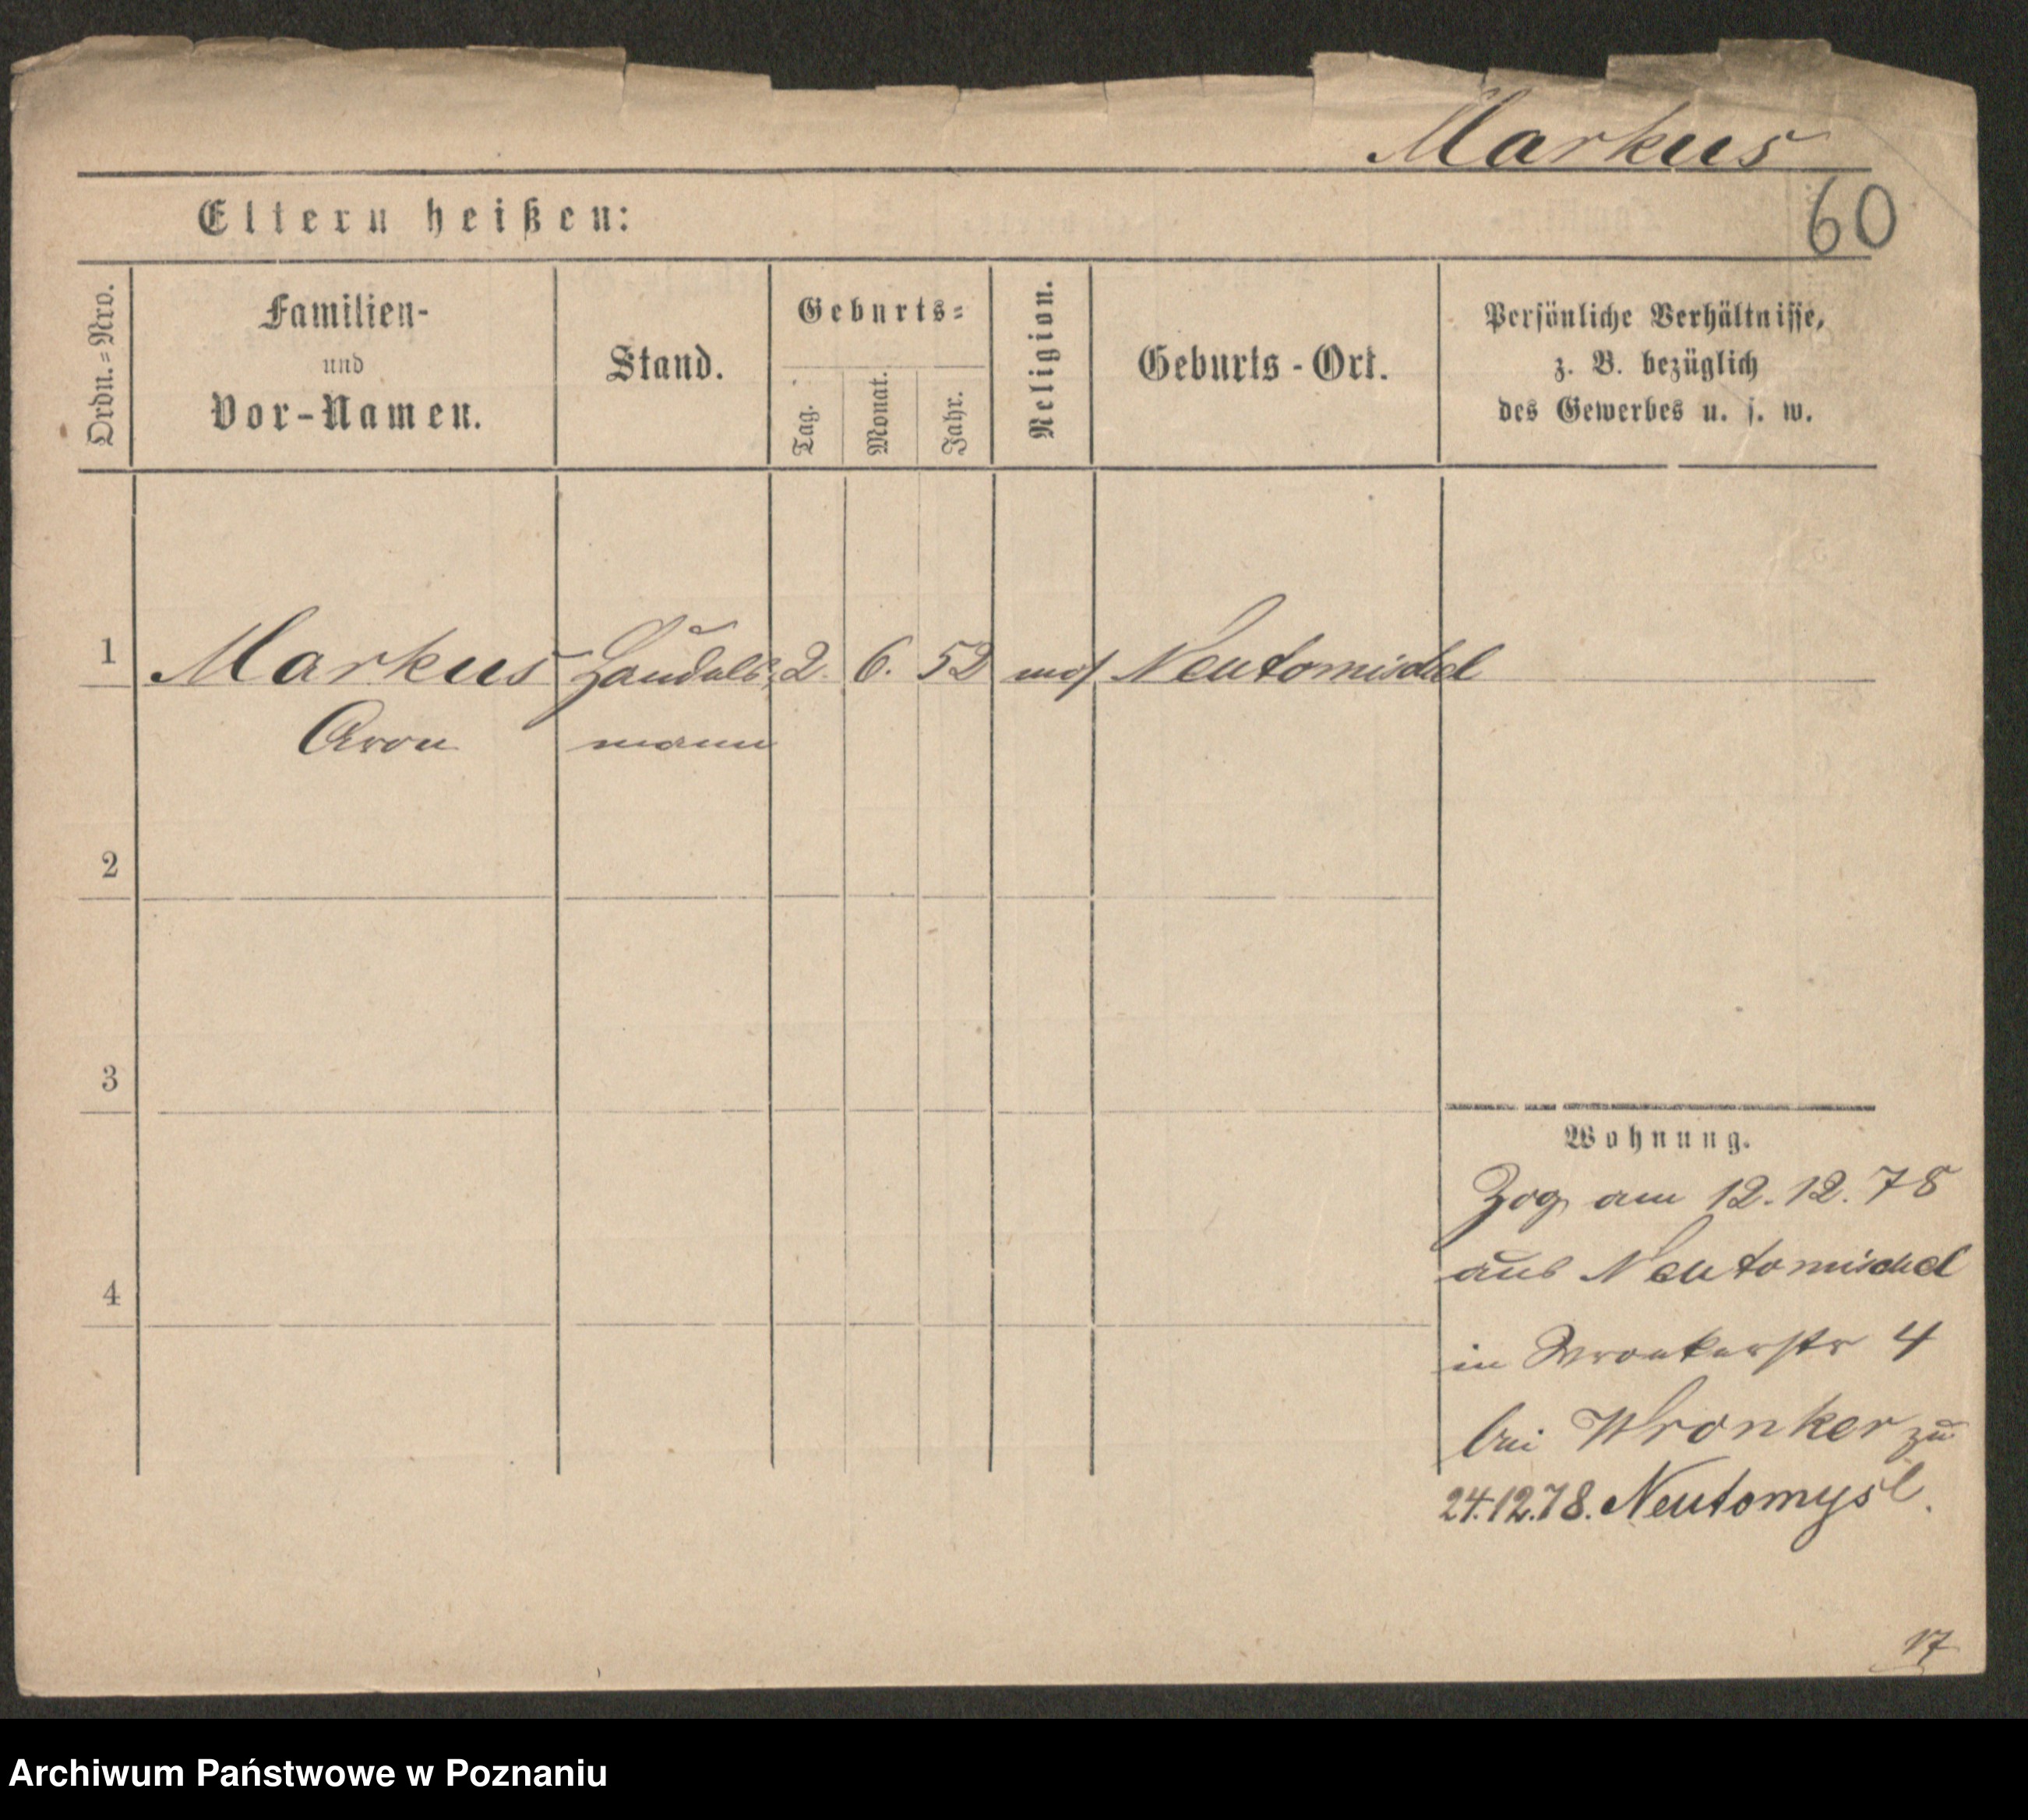 Markus
60
Eltern heißen:
Ordn.=Nro.
Familien-
und
Vor-Namen.
Stand.
Geburts=
Tag.
Monat.
Jahr.
Religion.
Geburts-Ort.
Persönliche Verhältnisse,
z. B. bezüglich
des Gewerbes u. s. w.
1 Markus Handels 2. 6. 52 mos Neutomischel
Aron mann
2
3
4
Wohnung.
Zog am 12.12.78
aus Neutomischel
in Wronkerstr 4
bei Wronker zu
24.12.78. Neutomysl.
17
Archiwum Państwowe w Poznaniu